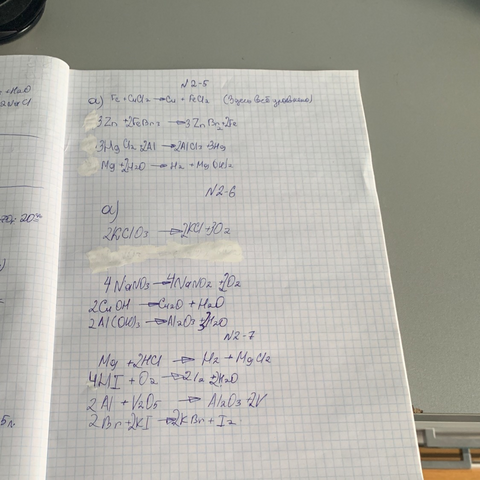 N2-5
а) Fe + CuCl2 → Cu + FeCl2 (Здесь всё уравнено)
3Zn + 2FeBr3 → 3ZnBr2 + 2Fe
3HgCl2 + 2Al → 2AlCl3 + 3Hg
Mg + 2H2O → H2 + Mg(OH)2
N2-6
а)
2KClO3 → 2KCl + 3O2
4NaNO3 → 4NaNO2 + 2O2
2CuOH → Cu2O + H2O
2Al(OH)3 → Al2O3 + 3H2O
N2-7
Mg + 2HCl → H2 + MgCl2
4HI + O2 → 2I2 + 2H2O
2Al + V2O5 → Al2O3 + 2V
2Br + 2KI → 2KBr + I2